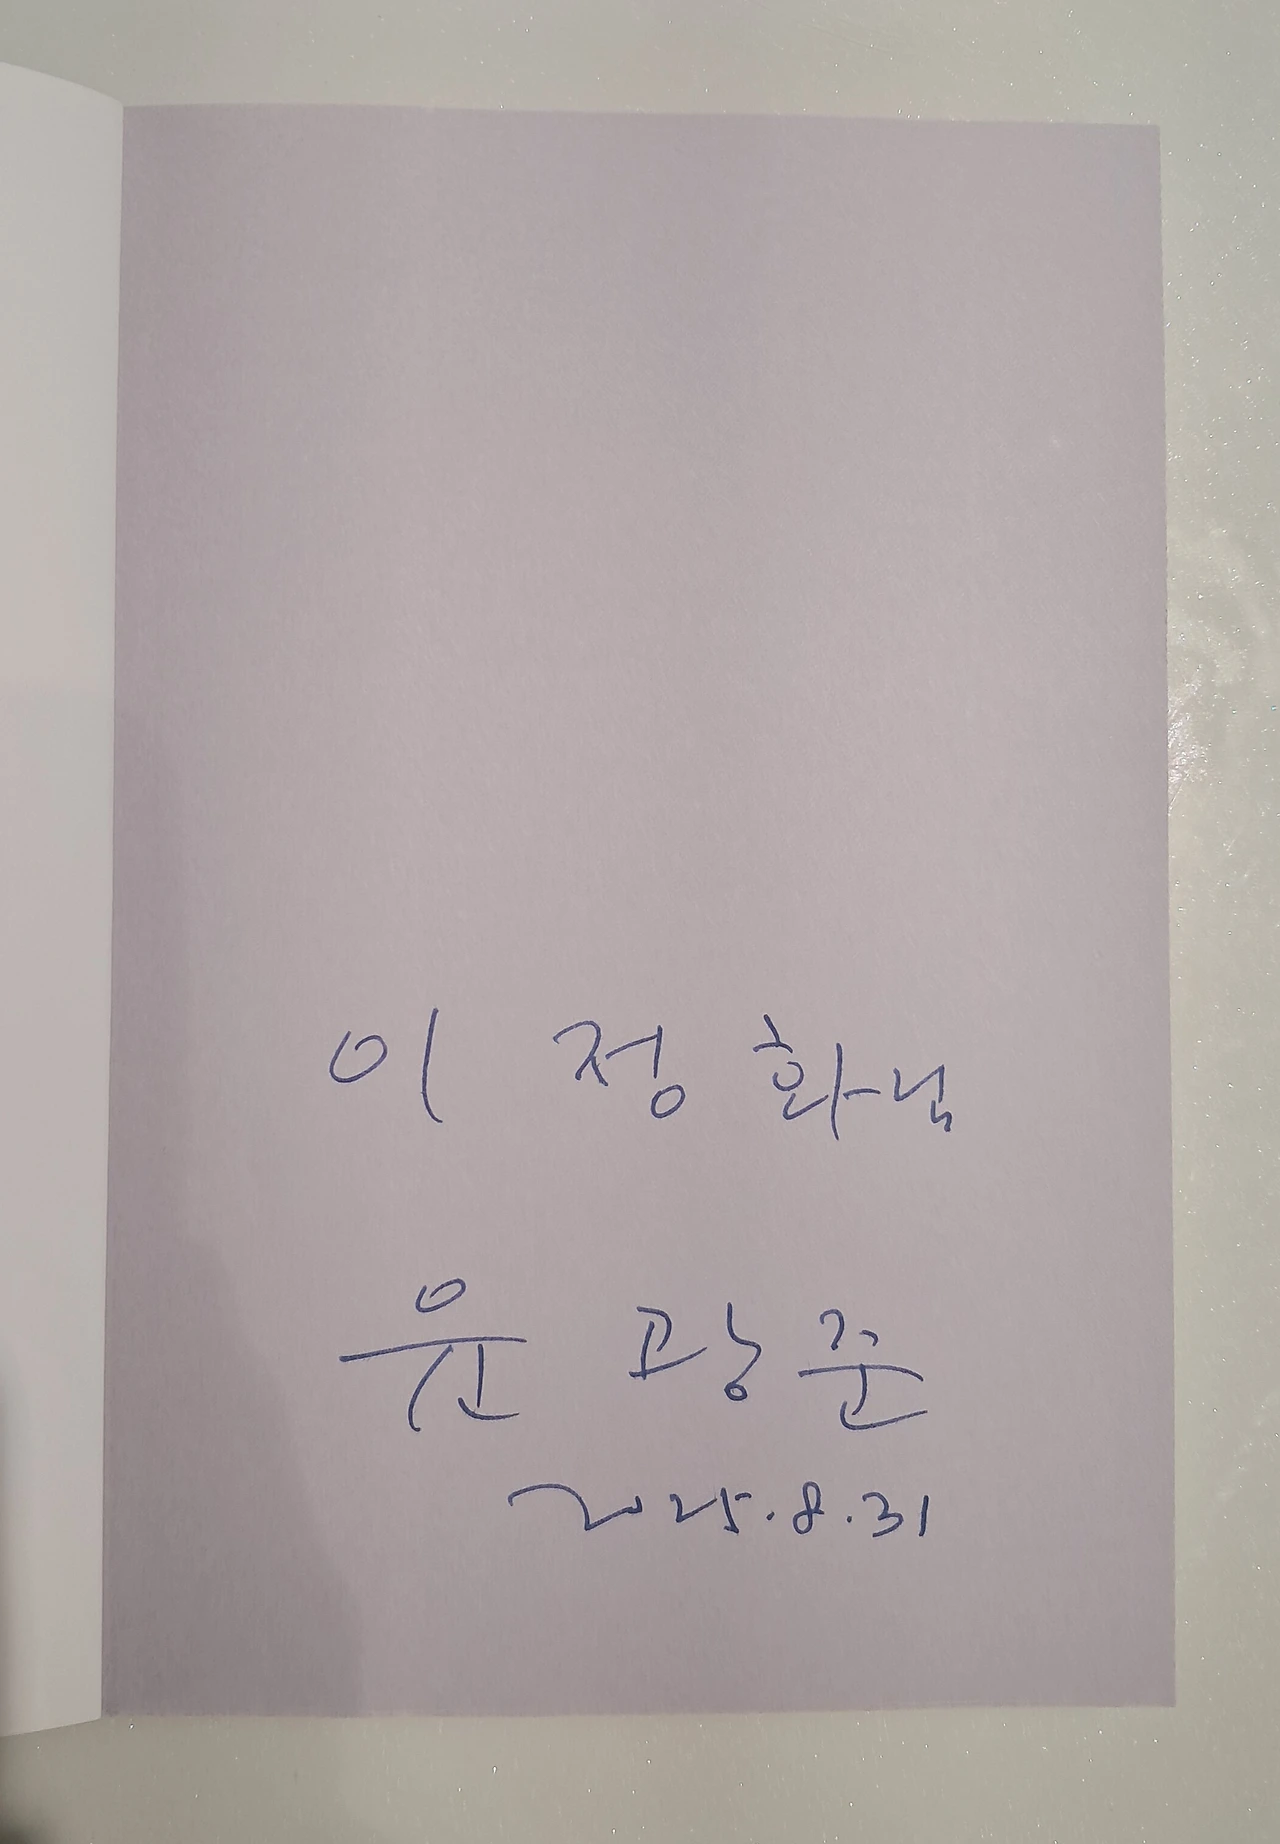 이 정 화님
윤 광 준
2025.8.31